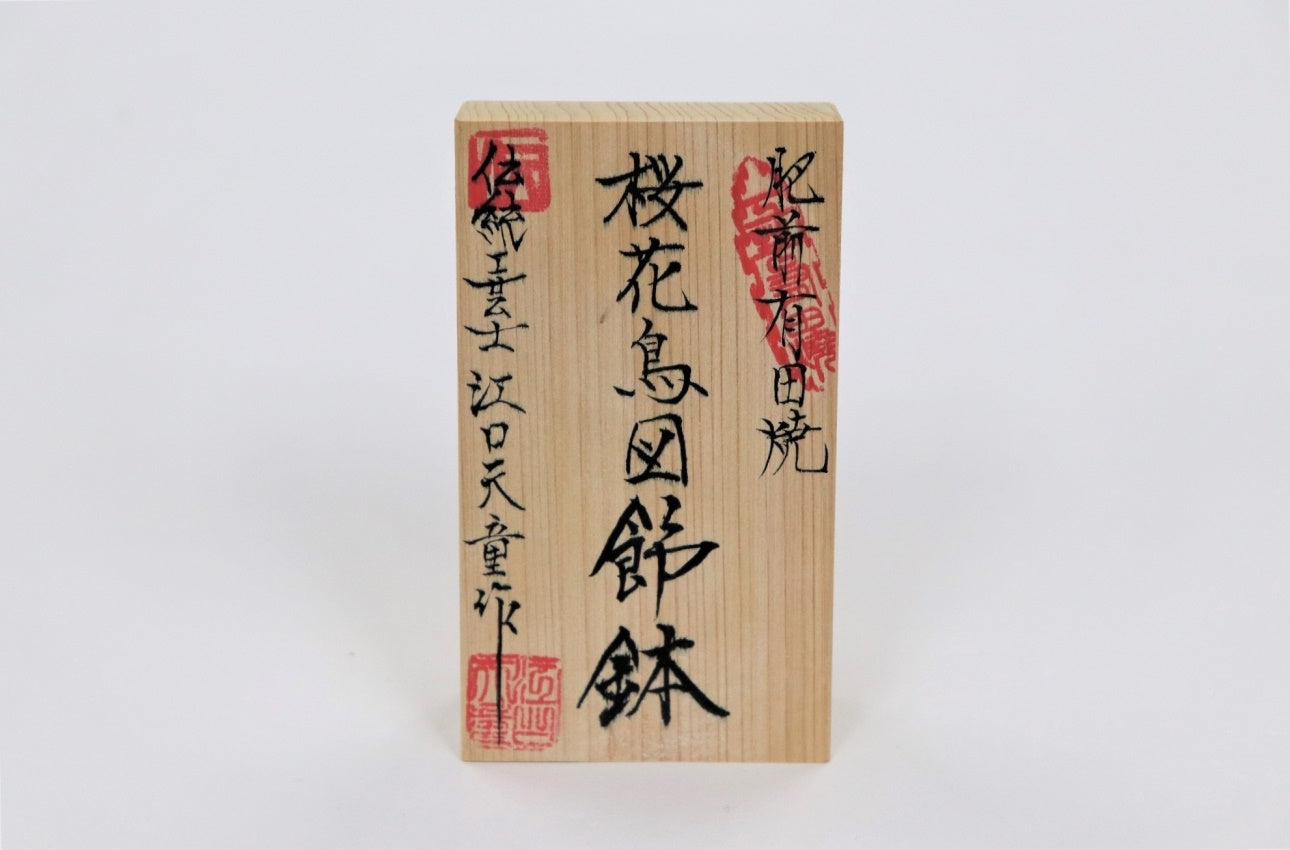 肥前有田焼
桜花鳥図飾鉢
伝統工芸士 江口天童作